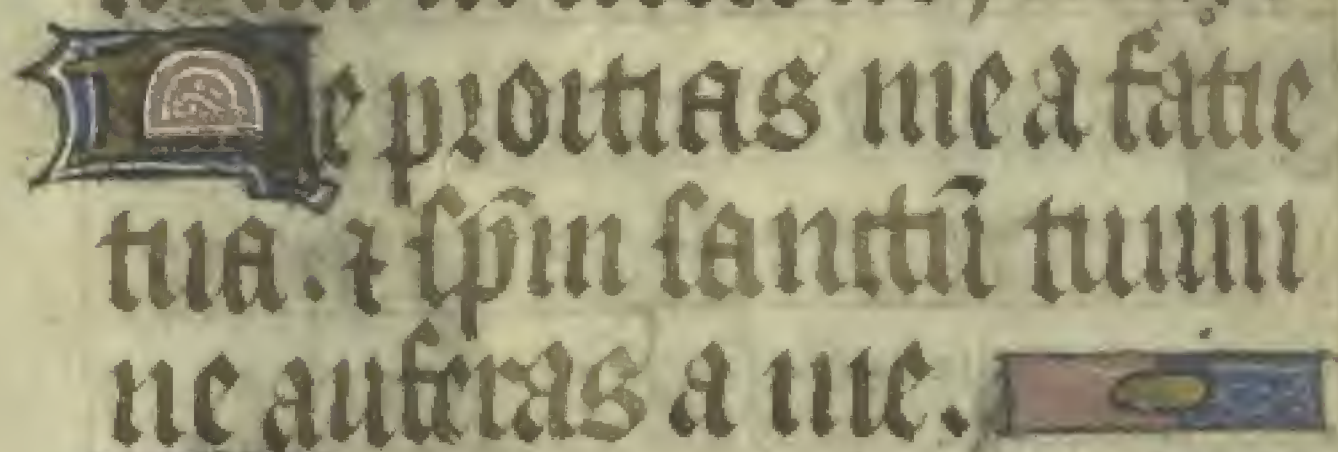 Ne proitias me a facie
tua. ⁊ sp̄m sanctū tuum
ne auferas a me.